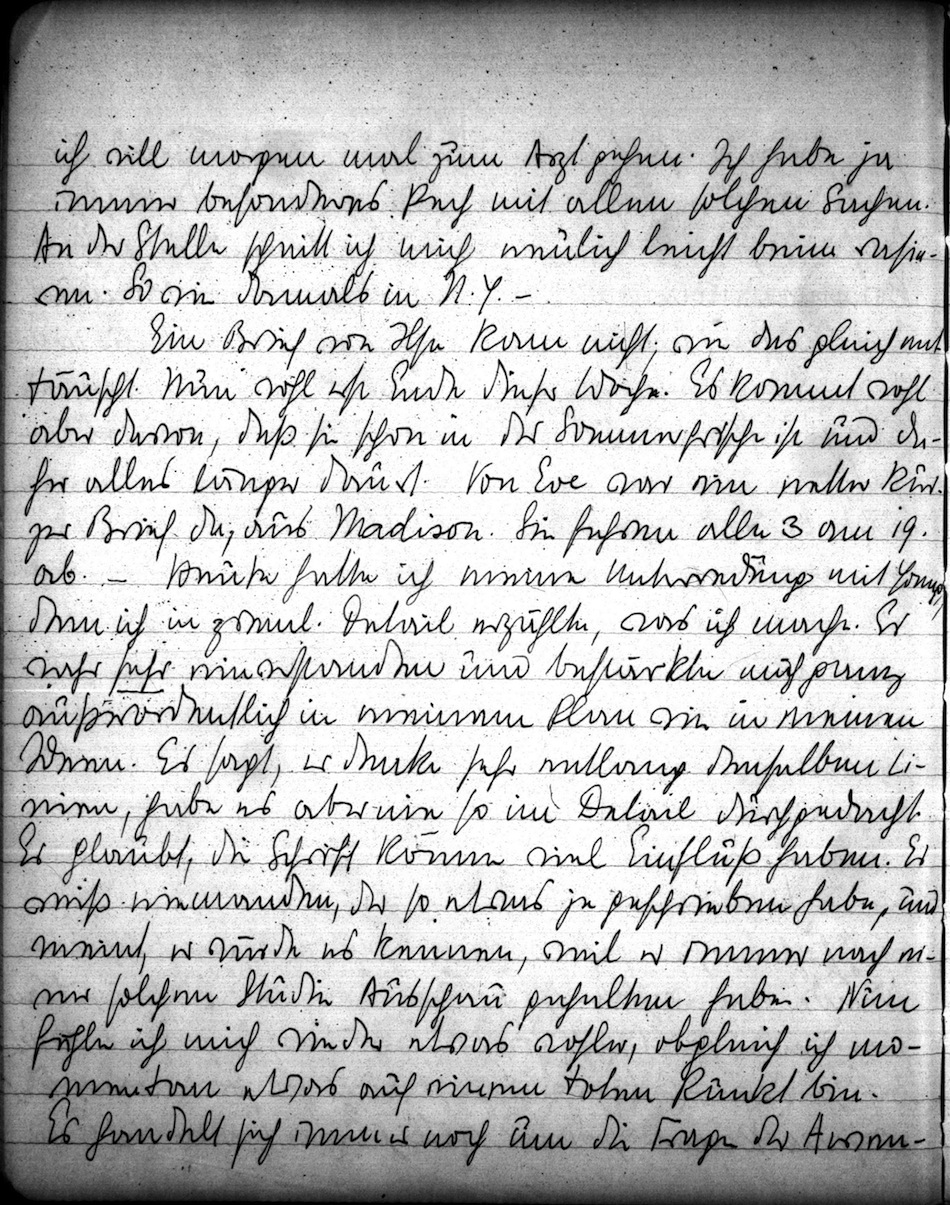 ich will morgen mal zum Arzt gehen. Ich habe ja
immer besonderes Pech mit allen solchen Sachen.
An der Stelle schnitt ich mich neulich leicht beim rasie-
ren. So wie damals in N.Y. –
Ein Brief von Ilse kam nicht, wie das gleich ent-
täuscht. Nun wohl erst Ende dieser Woche. Es kommt wohl
aber davon, daß sie schon in der Sommerfrische ist und da-
her alles länger dauert. Von Eve war ein netter kur-
zer Brief da, aus Madison. Sie fahren alle 3 am 19.
ab. – Heute hatte ich meine Unterredung mit
dem ich in zieml. Detail erzählte, was ich mache. Er
wahr sehr einverstanden und bestärkte mich ganz
außerordentlich in meinem Plan wie in meinen
Ideen. Er sagt, er denke sehr entlang denselben Li-
nien, habe es aber nie so im Detail durchgedacht.
Er glaubt, die Schrift könne viel Einfluß haben. Er
wiß niemanden, der so etwas je geschrieben habe, und
meint, er würde es kennen, weil er immer nach ei-
ner solchen Studie Ausschau gehalten habe. Nun
fühle ich mich wieder etwas wohler, obgleich ich mo-
mentan etwas auf einem toten Punkt bin.
Es handelt sich immer noch um die Frage der